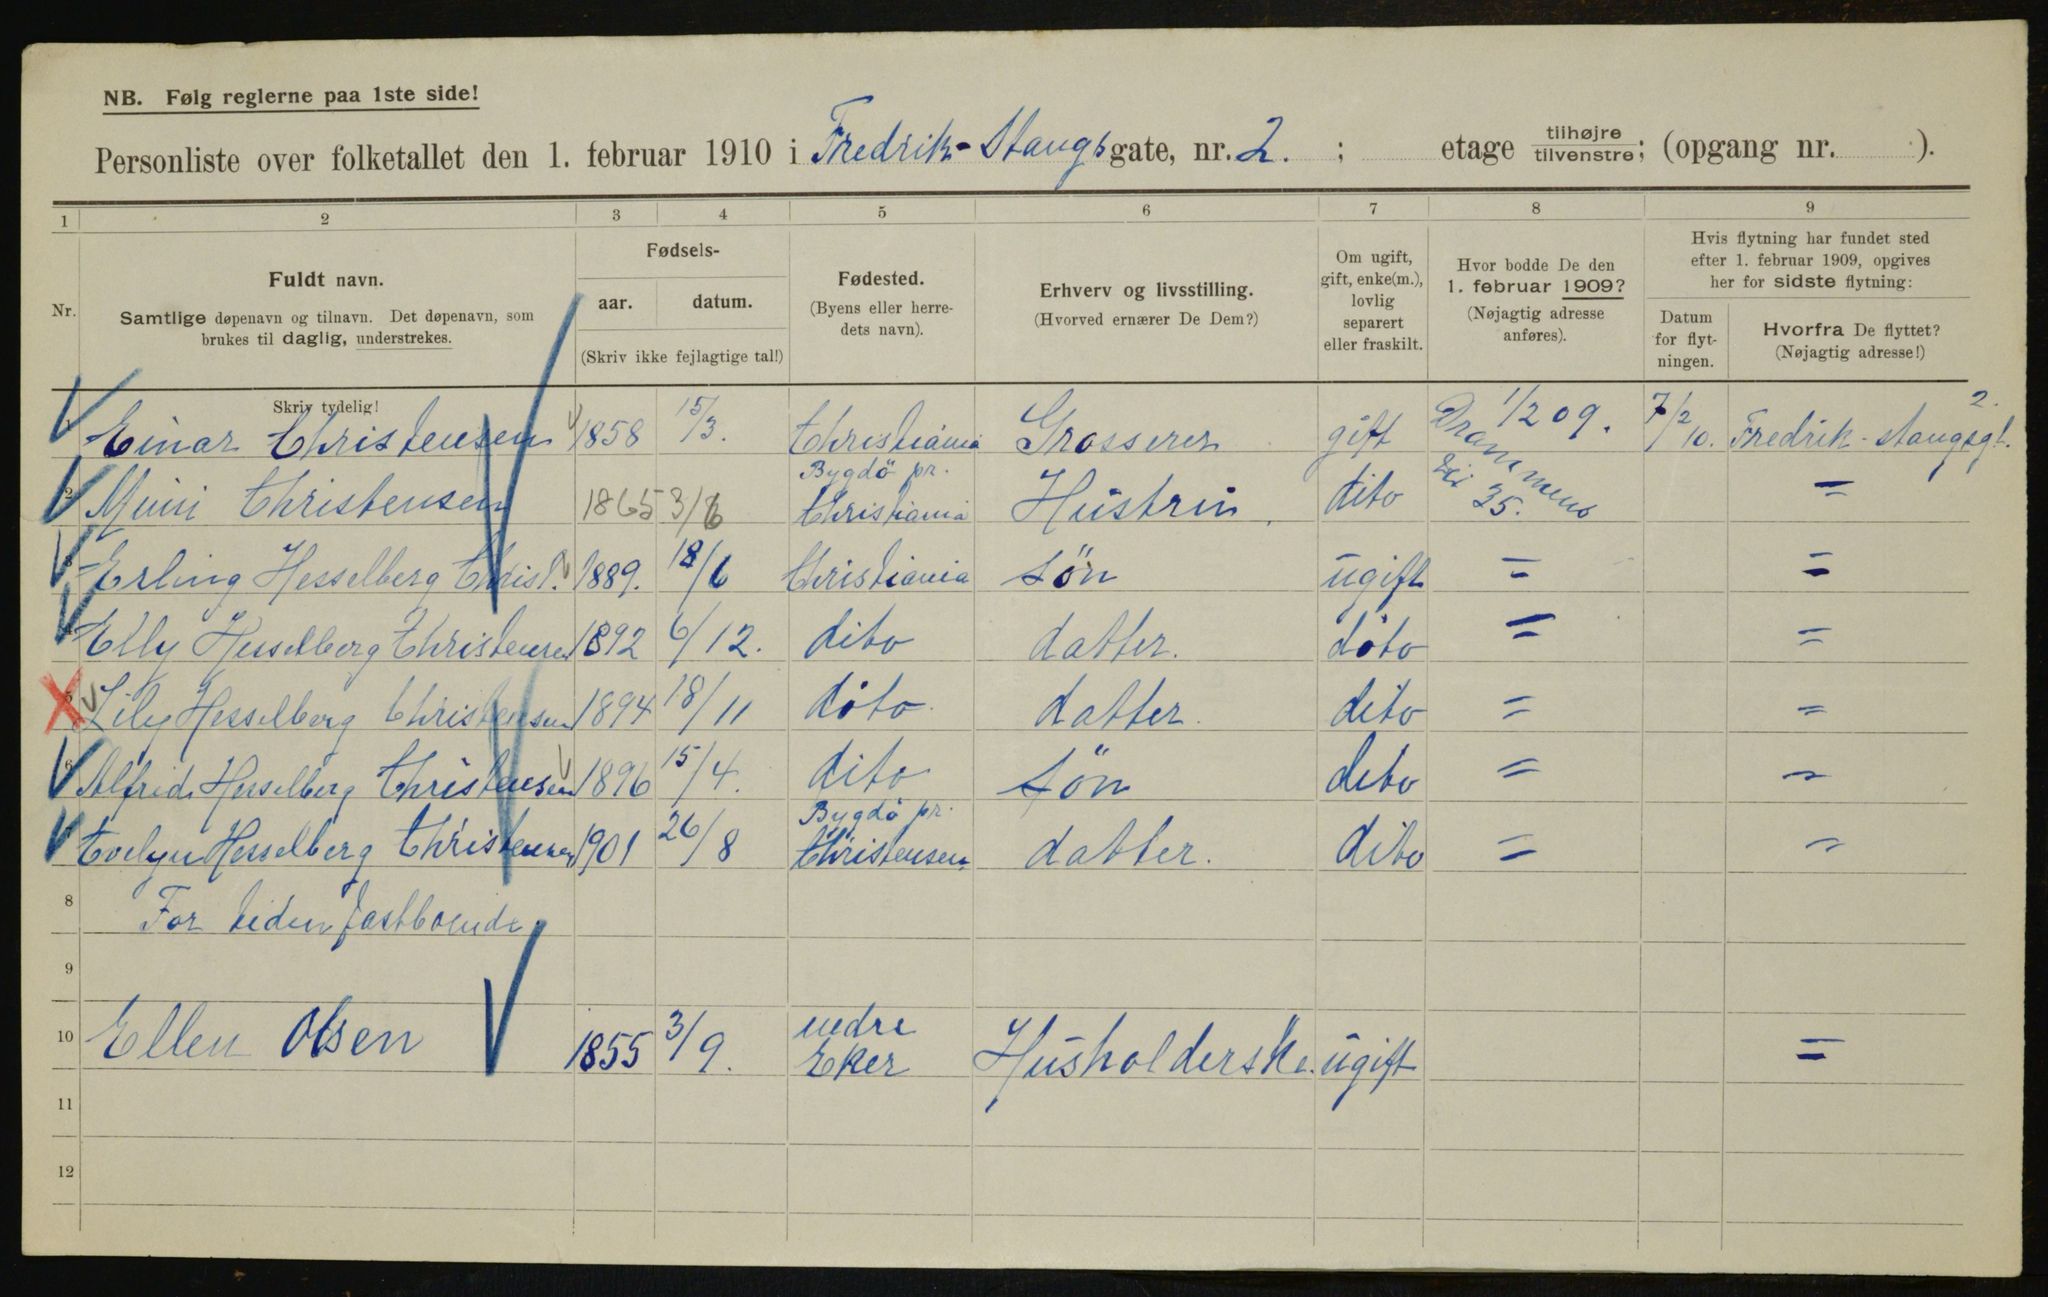 NB. Følg reglerne paa 1ste side!
Personliste over folketallet den 1. februar 1910 i Fredrik-Stangsgate, nr. 2. ; etage tilhøjre tilvenstre; (opgang nr. ).
1 2 3 4 5 6 7 8 9
Nr.
Fuldt navn.
Samtlige døpenavn og tilnavn. Det døpenavn, som
brukes til daglig, understrekes.
Skriv tydelig!
Fødsels-
aar. datum.
(Skriv ikke fejlagtige tal!)
Fødested.
(Byens eller herre-
dets navn).
Erhverv og livsstilling.
(Hvorved ernærer De Dem?)
Om ugift,
gift, enke(m.),
lovlig
separert
eller fraskilt.
Hvor bodde De den
1. februar 1909?
(Nøjagtig adresse
anføres).
Hvis flytning har fundet sted
efter 1. februar 1909, opgives
her for sidste flytning:
Datum
for flyt-
ningen.
Hvorfra De flyttet?
(Nøjagtig adresse!)
1 Einar Christensen 1858 15/3. Christiania Grosserer gift 1/2 09. Drammens 35. 7/2 10. Fredrik-stangsgt. 2.
2 Mimi Christensen 1865 3/6 Bygdö pr. Christiania Hüstrü dito =
3 Erling Hesselberg Christ. 1889. 18/6 Christiania sön ugift = =
Elly Hesselberg Christensen 1892 6/12. dito datter. dito = =
5 Lily Hesselberg Christensen 1894 18/11 dito datter. dito = =
6 Alfred Hesselberg Christensen 1896 15/4. dito sön dito = =
Evelyn Hesselberg Christensen 1901 26/8 Bygdö pr. Christensen datter. dito = =
8 For tiden fastboende
9
10 Ellen Olsen 1855 3/9. nedre Eker Hüsholderske. ugift =
11
12